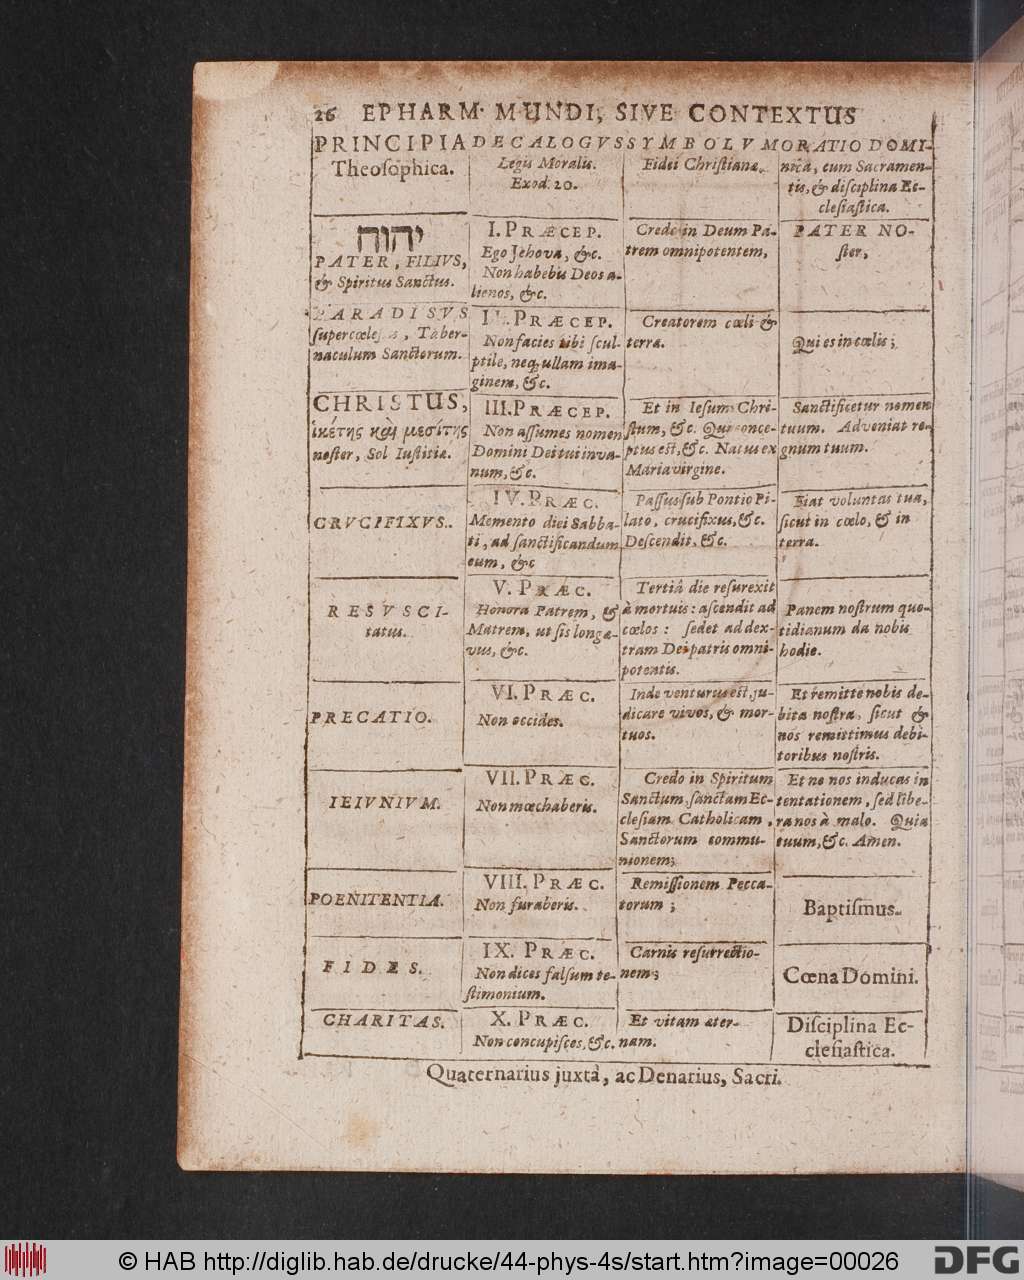 26 EPHARM. MUNDI, SIVE CONTEXTUS
PRINCIPIA
Theoſophica.
DECALOGVS
Legis Moralis.
Exod. 20.
SYMBOLVM
Fidei Chriſtianæ.
ORATIO DOMI-
nica, cum Sacramen-
tis, & diſciplina Ec-
cleſiaſtica.
יהוה
PATER, FILIVS,
& Spiritus Sanctus.
I. PRÆCEP.
Ego Jehova, &c.
Non habebis Deos a-
lienos, &c.
Credo in Deum Pa-
trem omnipotentem,
PATER NO-
ſter,
PARADISVS
ſupercœleſtis, Taber-
naculum Sanctorum.
II. PRÆCEP.
Non facies tibi ſcul-
ptile, neq; ullam ima-
ginem, &c.
Creatorem cœli &
terra.
Qui es in cœlis;
CHRISTUS,
ἱκέτης καὶ μεσίτης
noſter, Sol Iuſtitiæ.
III. PRÆCEP.
Non aſſumes nomen
Domini Dei tui in va-
num, &c.
Et in Ieſum Chri-
ſtum, &c. Qui conce-
ptus eſt, &c. Natus ex
Maria virgine.
Sanctificetur nomen
tuum. Adveniat re-
gnum tuum.
CRVCIFIXVS.
IV. PRÆC.
Memento diei Sabba-
ti, ad ſanctificandum
eum, &c
Paſſus ſub Pontio Pi-
lato, crucifixus, &c.
Deſcendit, &c.
Fiat voluntas tua,
ſicut in cœlo, & in
terra.
RESVSCI-
tatus.
V. PRÆC.
Honora Patrem, &
Matrem, ut ſis longæ-
vus, &c.
Tertiâ die reſurexit
à mortuis: aſcendit ad
cœlos: ſedet ad dex-
tram Dei patris omni-
potentis.
Panem noſtrum quo-
tidianum da nobis
hodie.
PRECATIO.
VI. PRÆC.
Non occides.
Inde venturus eſt, ju-
dicare vivos, & mor-
tuos.
Et remitte nobis de-
bita noſtra, ſicut &
nos remittimus debi-
toribus noſtris.
IEIVNIVM.
VII. PRÆC.
Non mœchaberis.
Credo in Spiritum
Sanctum, ſanctam Ec-
cleſiam Catholicam,
Sanctorum commu-
nionem;
Et ne nos inducas in
tentationem, ſed libe-
ra nos à malo. Quia
tuum, &c. Amen.
POENITENTIA.
VIII. PRÆC.
Non furaberis.
Remiſſionem Pecca-
torum;
Baptiſmus.
FIDES.
IX. PRÆC.
Non dices falſum te-
ſtimonium.
Carnis reſurrectio-
nem;
Cœna Domini.
CHARITAS.
X. PRÆC.
Non concupiſces, &c.
Et vitam æter-
nam.
Diſciplina Ec-
cleſiaſtica.
Quaternarius juxtà, ac Denarius, Sacri.
© HAB http://diglib.hab.de/drucke/44-phys-4s/start.htm?image=00026
DFG